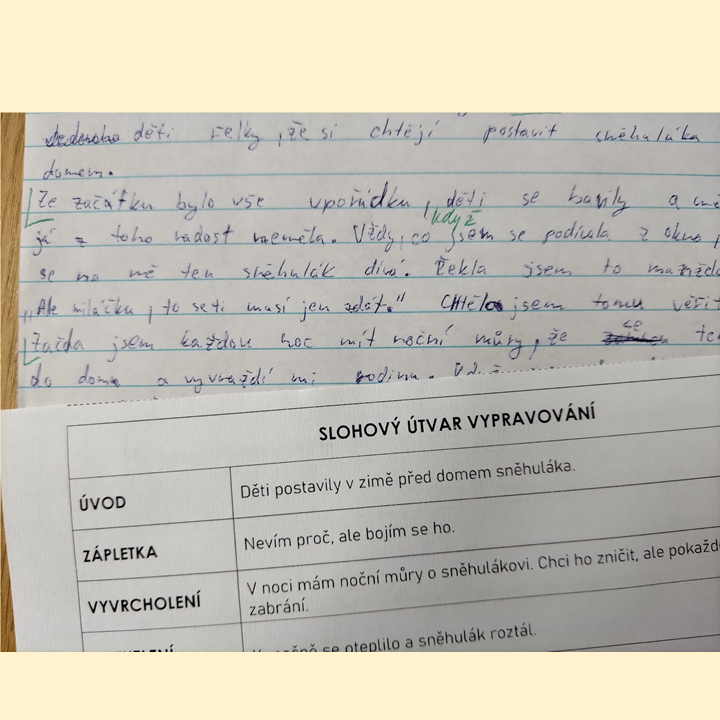 děti řelky, že si chtějí postavit sněhuláka
domem.
Ze začátku bylo vše vpořádku, děti se bavily a
když
já z toho radost neměla. Vždy, co jsem se podívala z okna,
se na mě ten sněhulák dívá. Řekla jsem to
„Ale miláčku, to se ti musí jen zdát." Chtěla jsem tomu věřit
Začda jsem každou noc mít noční můry, že se
do domu a vyvraždí mi rodinu.
SLOHOVÝ ÚTVAR VYPRAVOVÁNÍ
ÚVOD Děti postavily v zimě před domem sněhuláka.
ZÁPLETKA Nevím proč, ale bojím se ho.
VYVRCHOLENÍ V noci mám noční můry o sněhulákovi. Chci ho zničit, ale pokaždé
zabrání.
se oteplilo a sněhulák roztál.